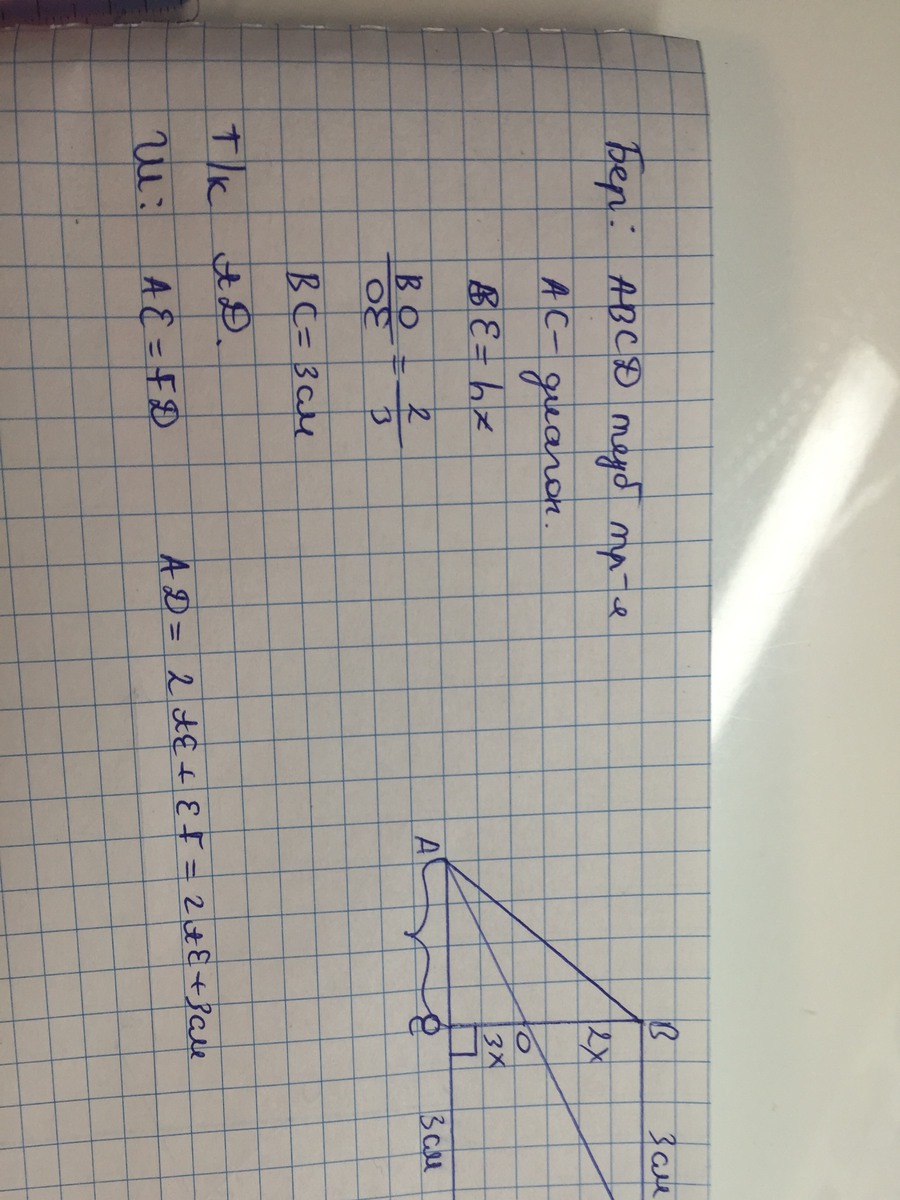 Бер: ABCD теуб тр-я
AC - диагон.
BE = hx
BO/OE = 2/3
BC = 3 см
Т/к AD.
Ш: AE = FD
AD = 2AE + EF = 2AE + 3 см
B
3 см
2x
O
3x
A
E
3 см